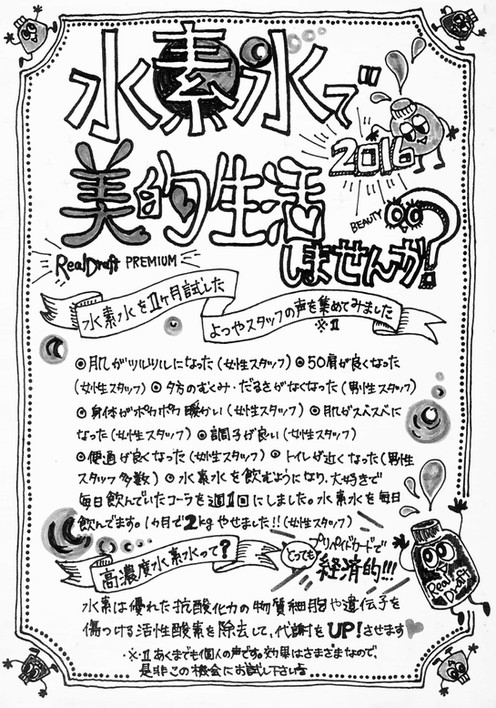 水素水で
2016
美的生活
BEAUTY
しませんか?!
Real Draft PREMIUM
水素水を1ヶ月試した
よつやスタッフの声を集めてみました
※1
◎肌がツルツルになった(女性スタッフ)◎50肩が良くなった
(女性スタッフ)◎夕方のむくみ・だるさがなくなった(男性スタッフ)
◎身体がポカポカ暖かい(女性スタッフ)◎肌がスベスベに
なった(女性スタッフ)◎調子が良い(女性スタッフ)
◎便通が良くなった(女性スタッフ)◎トイレが近くなった(男性
スタッフ多数)◎水素水を飲むようになり、大好きで
毎日飲んでいたコーラを週1回にしました。水素水を毎日
飲んでます。1ヶ月で2kgやせました!!(女性スタッフ)
高濃度水素水って?
とっても
プリペイドカードで
経済的!!!
Real Draft
水素は優れた抗酸化力の物質細胞や遺伝子を
傷つける活性酸素を除去して、代謝をUP!させます
・※・1あくまでも個人の声です。効果はさまざまなので、
是非この機会にお試し下さい